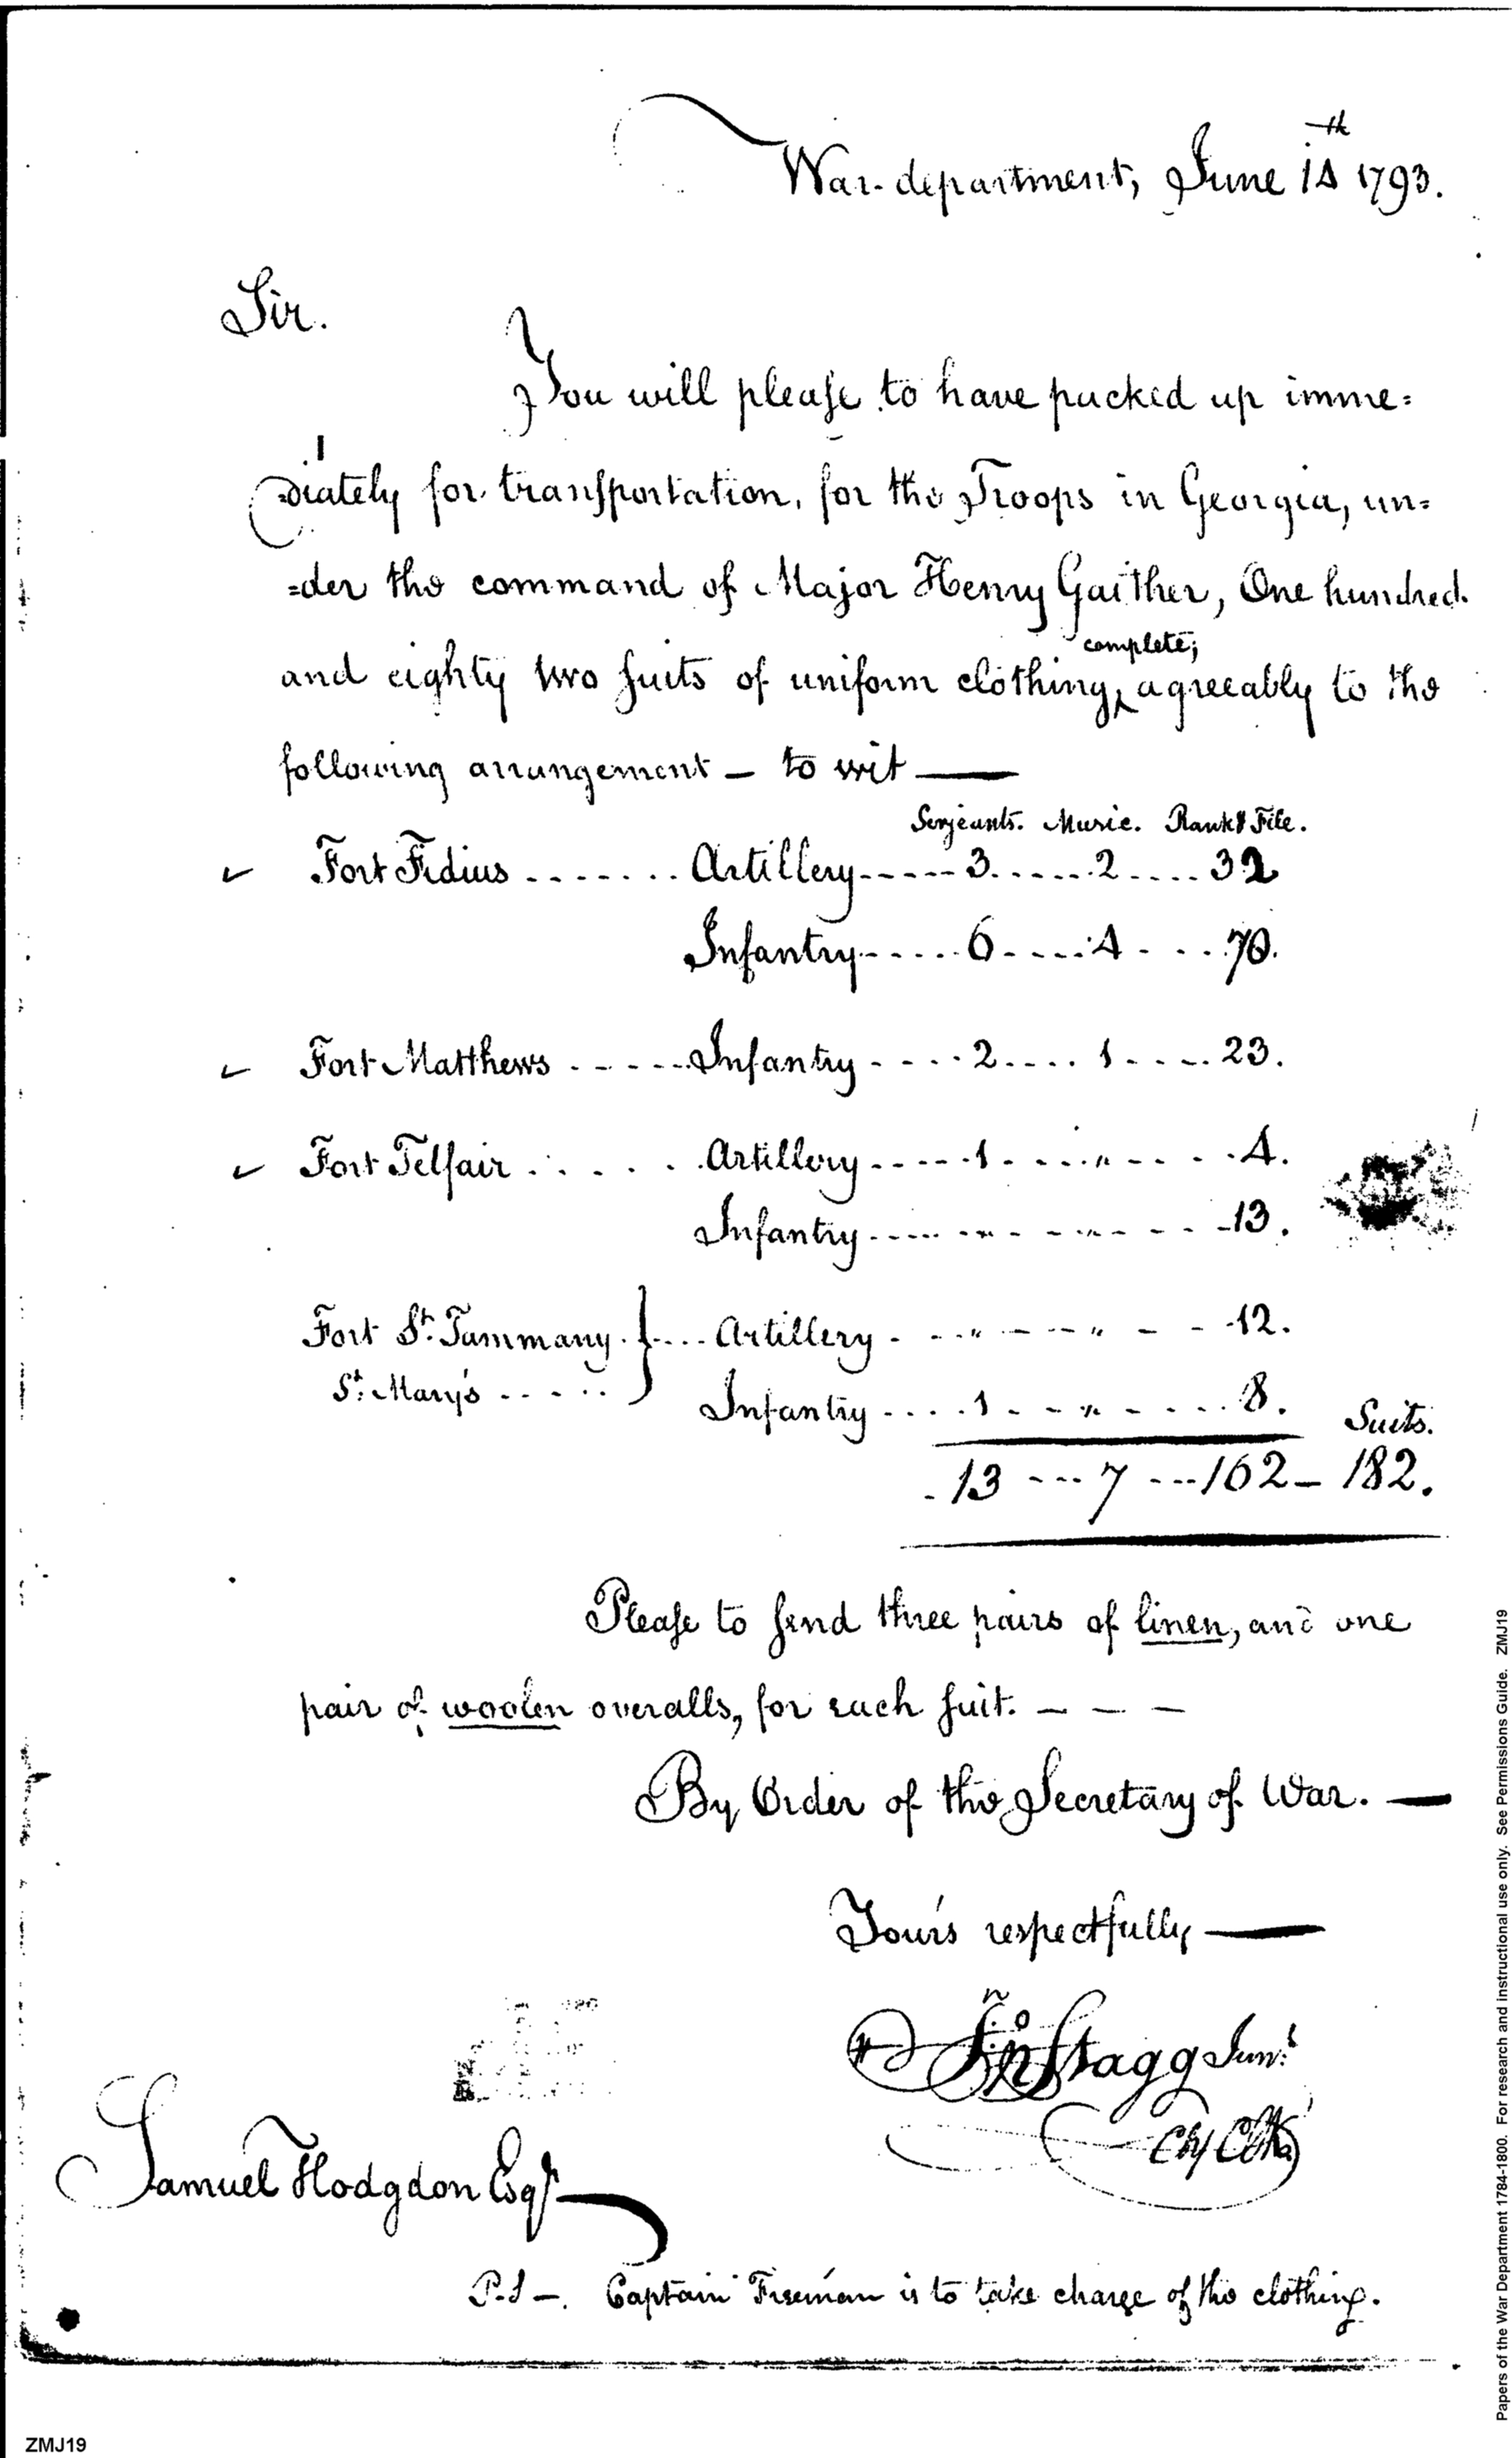 War-department, June 14th 1793.
Sir.
You will please to have packed up imme=
=diately for transportation, for the Troops in Georgia, un=
=der the command of Major Henry Gaither, One hundred
and eighty two suits of uniform clothing, complete; agreeably to the
following arrangement — to wit —
Serjeants. Music. Rank & File.
Fort Fidius ....... Artillery ----- 3 ...... 2 .... 32
Infantry ----- 6 ----- 4 ---- 70.
Fort Matthews ----- Infantry ---- 2 .... 1 ---- 23.
Fort Telfair ...... Artillery ----- 1 ---- " ---- 4.
Infantry ----- " ---- " ---- 13.
Fort St. Tammany } .... Artillery ---- " ---- " ---- 12.
St. Mary's ----- Infantry .... 1 ---- " ---- 8. Suits.
13 --- 7 --- 162 — 182.
Please to send three pairs of linen, and one
pair of woolen overalls, for each suit. — — —
By Order of the Secretary of War. —
Your's respectfully —
Jno Stagg Junr.
Chf Clk.
Samuel Hodgdon Esqr.
P.S —. Captain Freeman is to take charge of the clothing.
Papers of the War Department 1784-1800. For research and instructional use only. See Permissions Guide. ZMJ19
ZMJ19